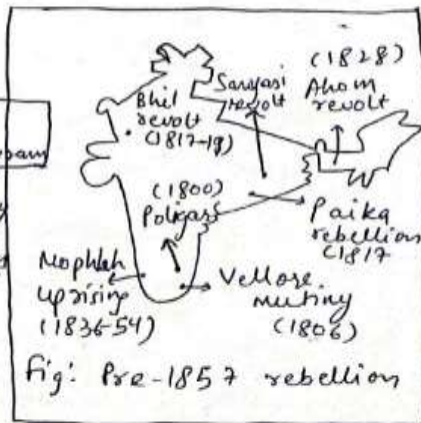 (1828)
Sanyasi Ahom
revolt revolt
Bhil
revolt
(1817-19)
(1800)
Poligars
Paika
rebellion
(1817
Mophlah
uprising
(1836-54)
Vellore
mutiny
(1806)
Fig: Pre-1857 rebellion